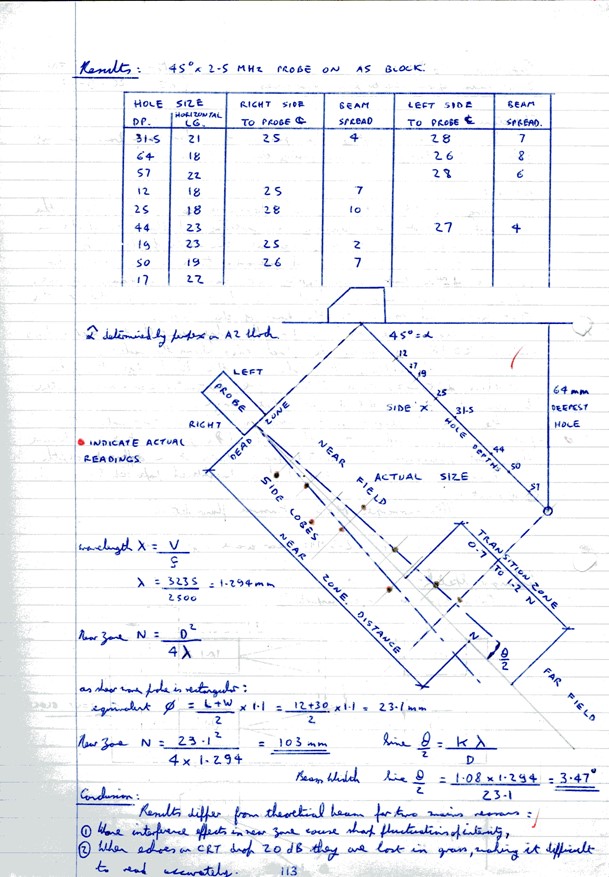 Results: 45° x 2.5 MHz PROBE ON A5 BLOCK.
HOLE SIZE RIGHT SIDE BEAM LEFT SIDE BEAM
DP. HORIZONTAL LG. TO PROBE ℄ SPREAD TO PROBE ℄ SPREAD.
31.5 21 25 4 28 7
64 18 26 8
57 22 28 6
12 18 25 7
25 18 28 10
44 23 27 4
19 23 25 2
50 19 26 7
17 22
determined by on A2 block
45° = α
12
17
19
25
31.5
44
50
57
SIDE X
HOLE DEPTHS
64 mm
DEEPEST
HOLE
LEFT
PROBE
RIGHT
DEAD ZONE
• INDICATE ACTUAL
READINGS
NEAR FIELD
ACTUAL SIZE
SIDE LOBES
NEAR ZONE DISTANCE
TRANSITION ZONE
0.7 TO 1.2 N
N
θ/2
FAR FIELD
wavelength λ = V/f
λ = 3235/2500 = 1.294 mm
Near Zone N = D²/4λ
as shear wave probe is rectangular:
equivalent φ = L+W/2 x 1.1 = 12+30/2 x 1.1 = 23.1 mm
Near Zone N = 23.1²/4 x 1.294 = 103 mm
Sine θ/2 = Kλ/D
Beam Width Sine θ/2 = 1.08 x 1.294/23.1 = 3.47°
Conclusion:
Results differ from theoretical beam for two main reasons:
① Wave interference effects in near zone cause sharp fluctuations of intensity,
② When echoes on CRT drop 20 dB they are lost in grass, making it difficult
to read accurately.
113